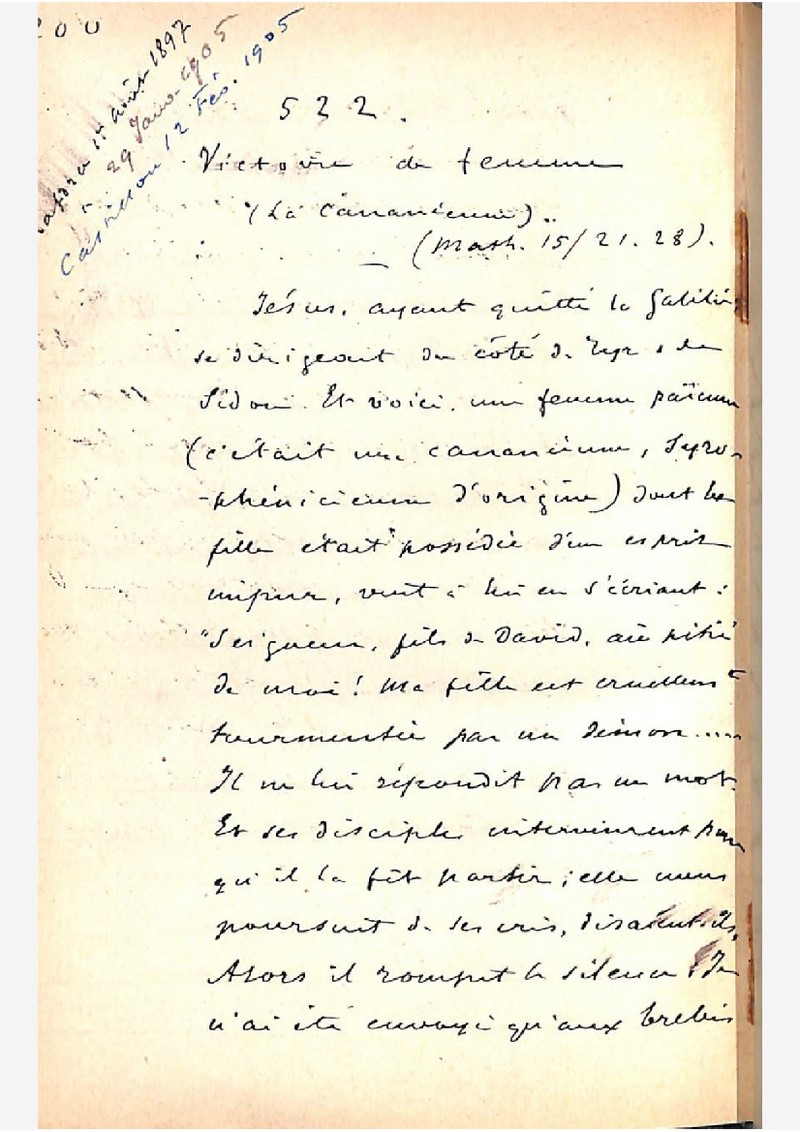 200
août 1897
29 Janv. 1905
Castillon 12 Fév. 1905
532.
Victoire de femme
(La Cananéenne)..
(Math. 15/21.28).
Jésus, ayant quitté la Galilée,
se dirigeant du côté de Tyr & de
Sidon. Et voici, une femme païenne
(c'était une cananéenne, Syro-
-phénicienne d'origine) dont la
fille était possédée d'un esprit
impur, vint à lui en s'écriant :
"Seigneur, fils de David, aie pitié
de moi! Ma fille est cruellemt
tourmentée par un démon.....
Il ne lui répondit pas un mot.
Et ses disciples intervinrent pour
qu'il la fît partir; elle nous
poursuit de ses cris, disaient-ils,
Alors il rompt le silence : Je
n'ai été envoyé qu'aux brebis